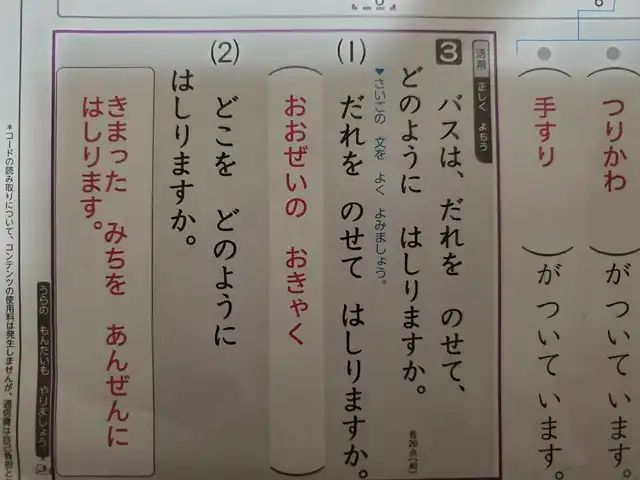 （つりかわ）が ついて います。
（手すり）が ついて います。
活用
正しく よもう
3 バスは、だれを のせて、
どのように はしりますか。
各20点
▼さいごの 文を よく よみましょう。
(1) だれを のせて はしりますか。
（おおぜいの おきゃく）
(2) どこを どのように
はしりますか。
きまった みちを あんぜんに
はしります。
うらの もんだいも やりましょう
＊コードの読み取りについて、コンテンツの使用料は発生しませんが、通信費は自己負担と